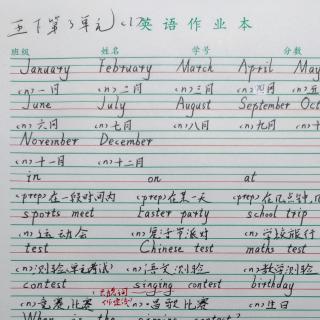 五下第3单元 (1) 英语作业本
班级 姓名 学号 分数
January February March April May
(n) 一月 (n) 二月 (n) 三月 (n) 四月 (n) 五
June July August September Oct
(n) 六月 (n) 七月 (n) 八月 (n) 九月 (n) 十
November December
(n) 十一月 (n) 十二月
in on at
(prep) 在一段时间内 (prep) 在某一天 (prep) 在几点钟
sports meet Easter party school trip
(n) 运动会 (n) 复活节派对 (n) 学校旅行
test Chinese test maths test
(n) 测验(单元考试) (n) 语文测验 (n) 数学测验
contest singing contest birthday
(n) 竞赛,比赛 (n) 唱歌比赛 (n) 生日
When is the singing contest?